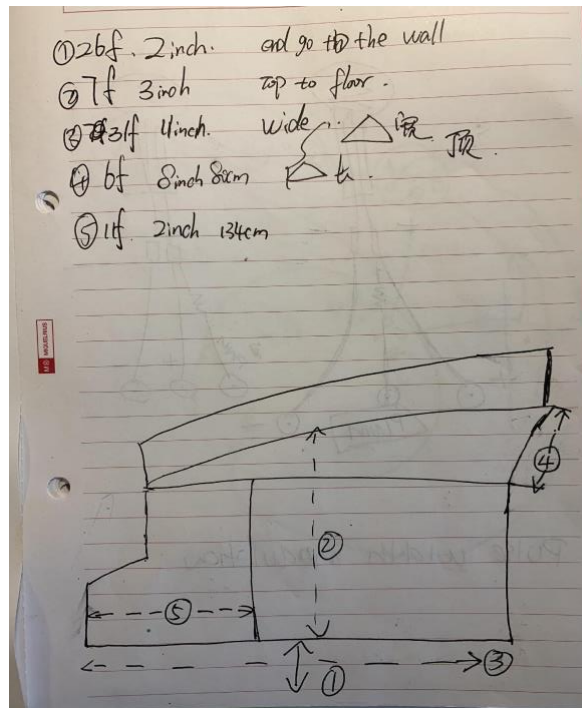 ① 26f. 2inch. and go to the wall
② 7f 3inch top to floor.
③ 31f 4inch. wide 宽 顶.
④ 6f 8inch 80cm 长.
⑤ 11f. 2inch 134cm
MIQUELRIUS
④
②
⑤
③
①